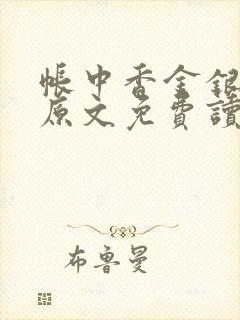 帳中香金銀
原文免費讀
布魯曼